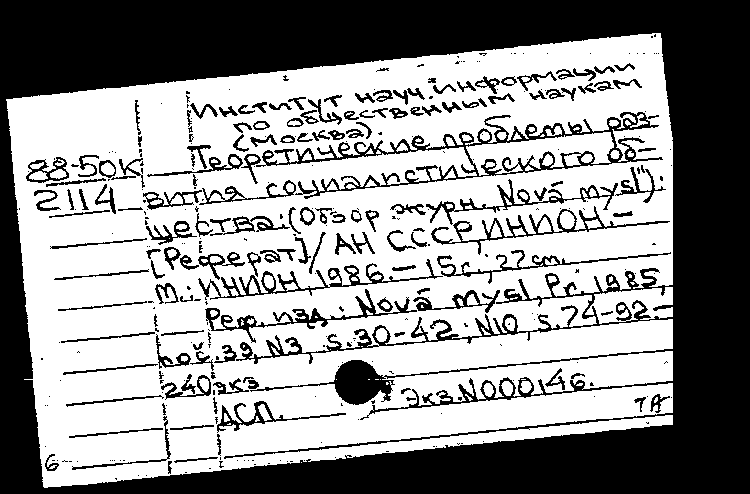 Институт науч. информации
по общественным наукам
(Москва).
88-50К Теоретические проблемы раз-
2114 вития социалистического об-
щества: (Обзор журн. "Nová mysl"):
[Реферат] / АН СССР, ИНИОН. –
М.: ИНИОН, 1986. – 15 с.; 27 см.
Реф. изд.: Nová mysl, Pr., 1985,
roč. 39, N3, s. 30-42; N10, s. 74-92. –
240 экз.
ДСП. Экз. N000146.
ТА
6